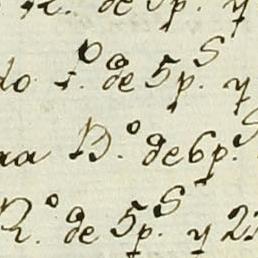 R. de 5 p. y
do 1.º de 5 p.s y
B.º de 6 p.s
R.º de 5 p.s y 2